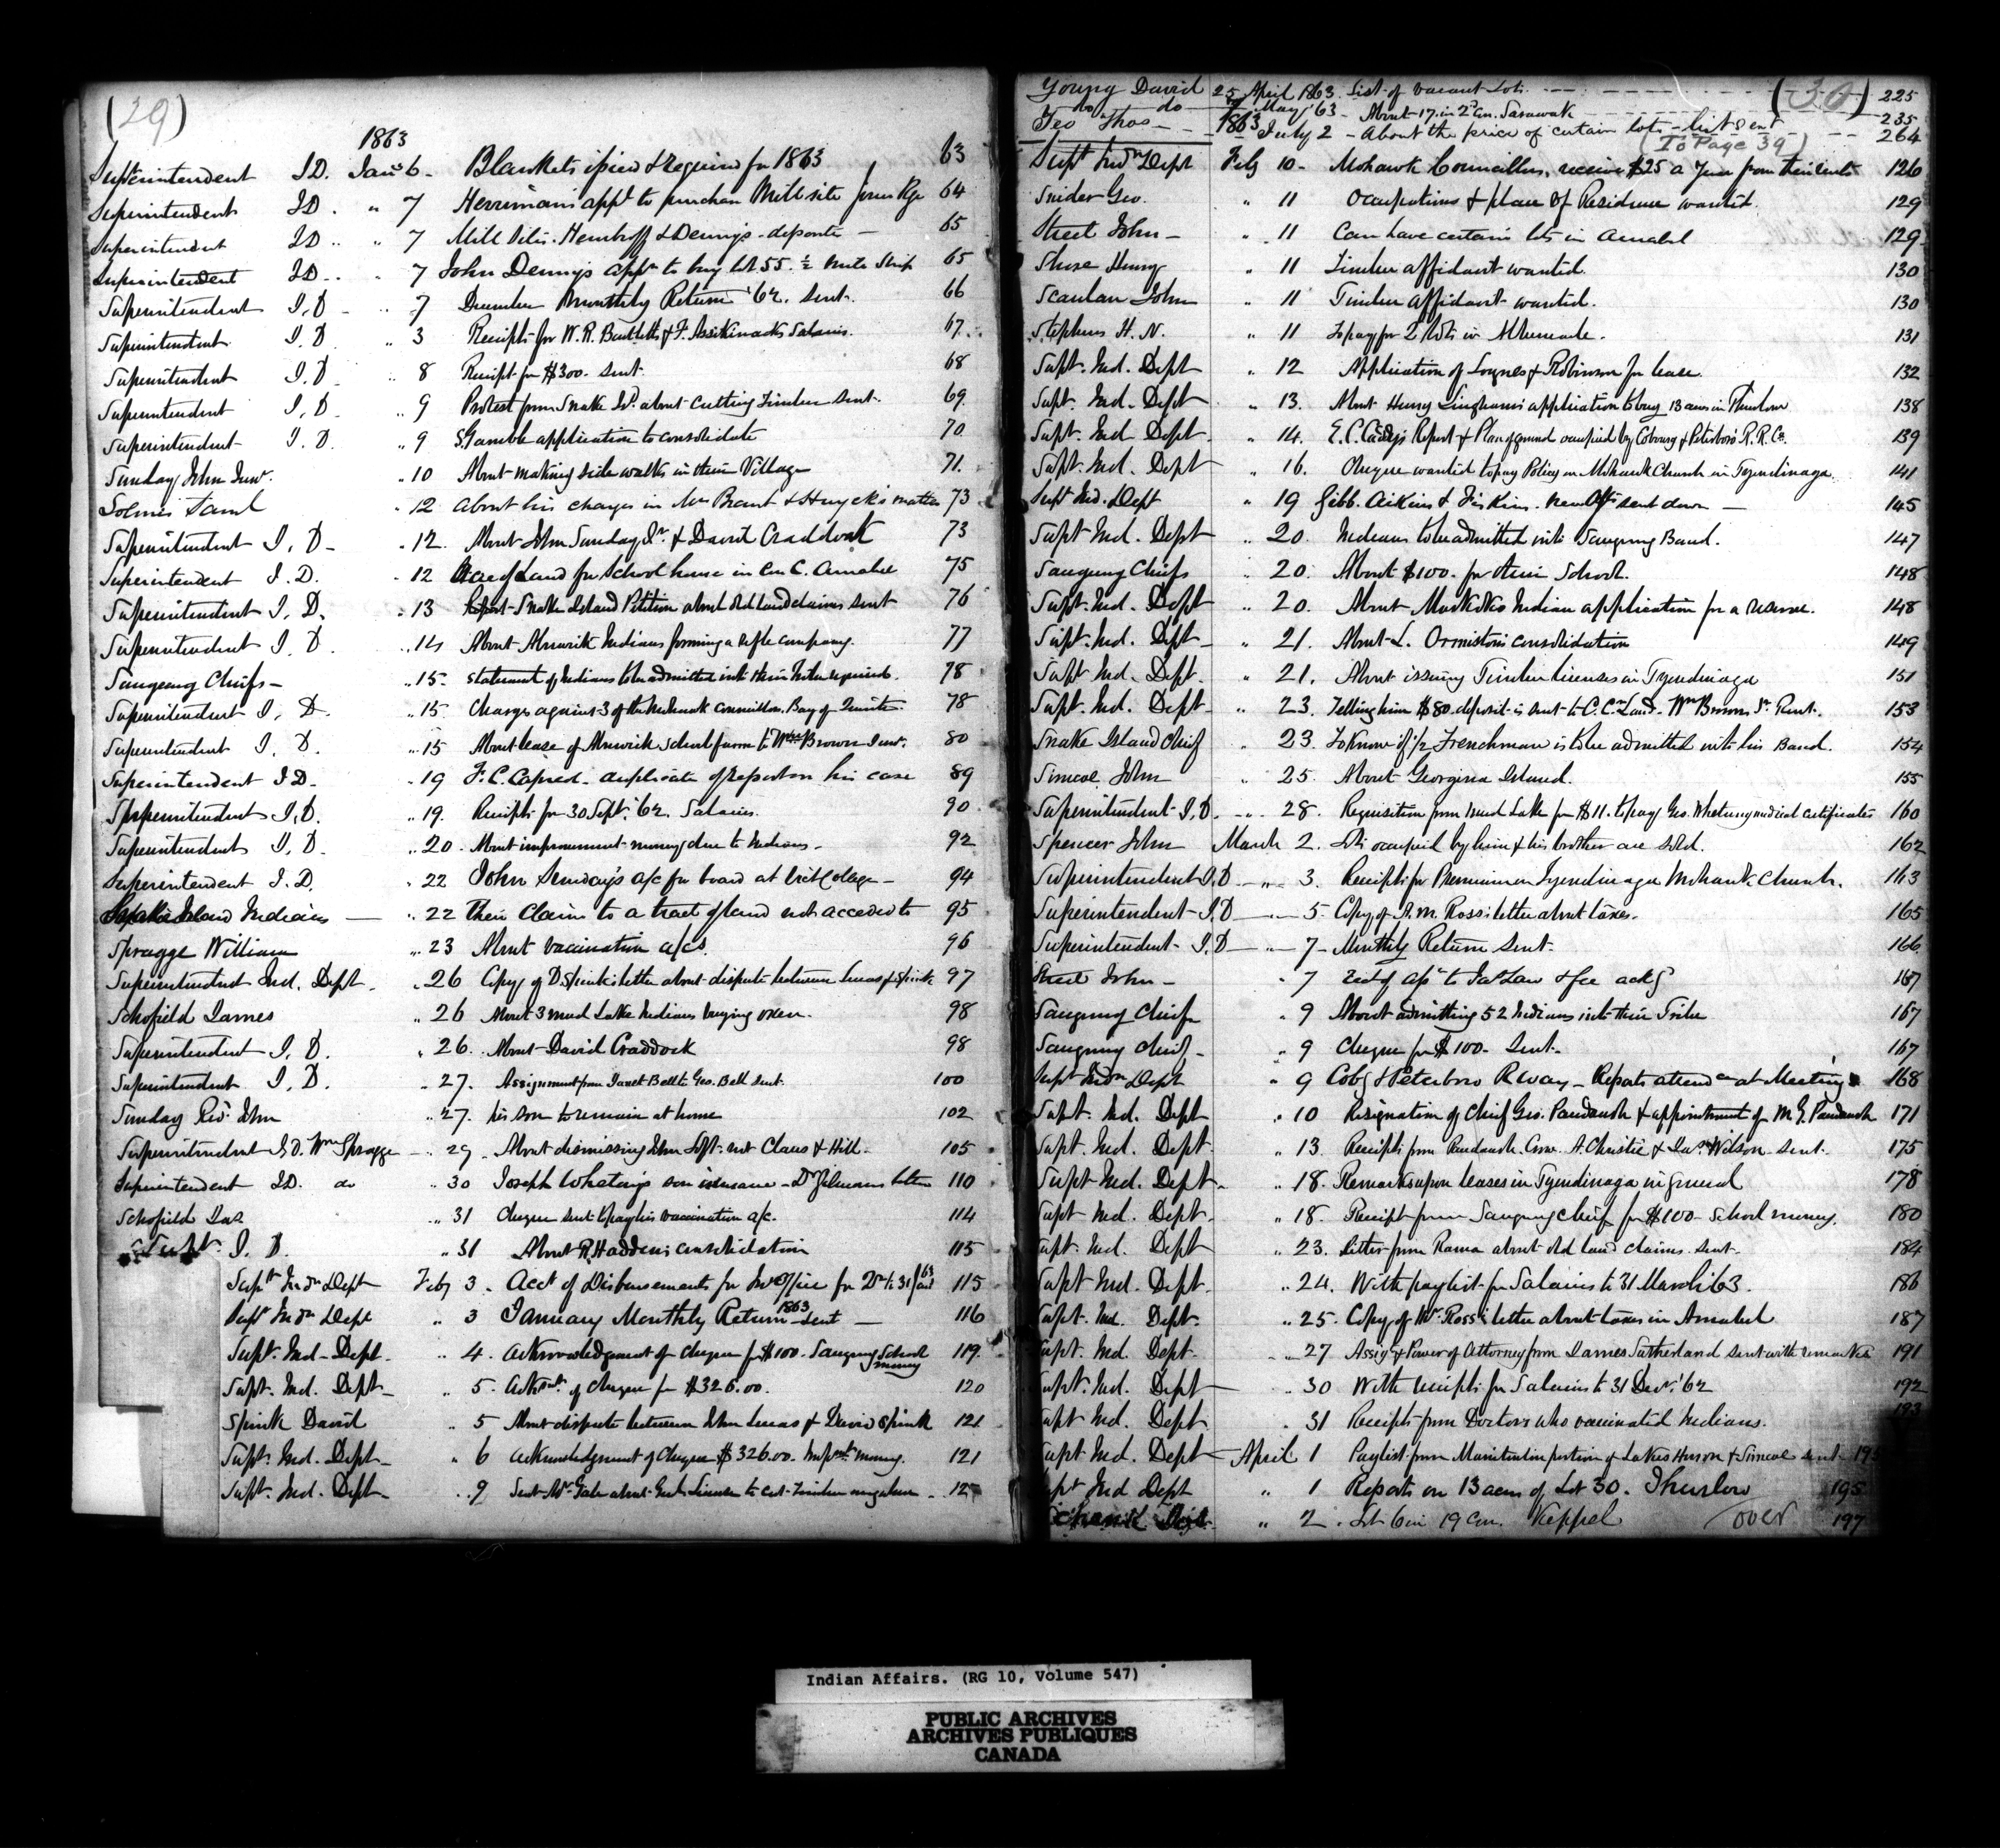 (29)
1863
Superintendent I.D. Jany 6 - Blankets issued & required for 1863 63
Superintendent I.D. " 7 Herriman's appn to purchase Mill site 64
Superintendent I.D. " 7 Mill Site. & Dennys - deposits - 65
Superintendent I.D. " 7 John Dennys appn to buy lot 55. ½ mile Strip 65
Superintendent I.D - " 7 December Monthly Return '62. sent. 66
Superintendent I.D " 3 Receipts for W.R. Bartlett & F. Assikinacks Salaries. 67.
Superintendent I.D - " 8 Receipt for $300. sent. 68
Superintendent I.D - " 9 Protest from Snake Id. about cutting Timber sent. 69.
Superintendent I.D. " 9 S. Gamble application to consolidate 70
Sunday John Junr. " 10 About making side walks in their Village 71.
Solmes Saml " 12 About his charges in Mrs Brant & Huycks matter 73
Superintendent I.D - " 12. About John Sunday Jr. & David Craddock 73
Superintendent I.D. " 12 Acre of Land for School house in Con C. Amabel 75
Superintendent I.D. " 13 Report Snake Island Petition about old land claims sent 76
Superintendent I.D. " 14 About Alnwick Indians forming a rifle company. 77
Saugeeng Chiefs - " 15 - Statement of Indians to be admitted into their Tribe required. 78
Superintendent I.D. " 15 Charges against 3 of the Mohawk Councillors, Bay of Quinte 78
Superintendent I.D. " 15 About lease of Alnwick School farm to Wm Brown Junr. 80
Superintendent I.D - " 19 F.C. Capreol. duplicate of report on his case 89
Superintendent I.D. " 19. Receipts for 30 Sept. '62. Salaries. 90
Superintendent I.D. " 20 - About improvement money due to Indians - 92
Superintendent I.D. " 22 John Sunday's a/c for board at Vict. College - 94
Snake Island Indians - " 22 Their Claim to a tract of land not acceded to 95
Spragge William " 23 About vaccination a/cs. 96
Superintendent Ind. Dept. " 26 Copy of D. Spink's letter about dispute between Lucas & Spink 97
Schofield James " 26 About 3 Mud Lake Indians buying oxen. 98
Superintendent I.D. " 26. About David Craddock 98
Superintendent I.D. " 27. Assignment from Janet Bell to Geo. Bell sent. 100
Sunday Revd John " 27. his son to remain at home 102
Superintendent I.D. Wm Spragge " 29. About dismissing John Loft. not Claus & Hill. 105
Superintendent I.D. do " 30 Joseph Whetung's son insane - Dr Gilmour's letter 110
Schofield Jas " 31 Cheque sent to pay his vaccination a/c. 114
Supt. I.D. " 31 About R. Hadden's consolidation 115
Supt Indn Dept Feby 3. Acct of Disbursements for Ind Office for Qr to 31 Jan 63 115
Supt Indn Dept " 3 January Monthly Return 1863 sent - 116
Supt. Ind. Dept. " 4. Acknowledgment of cheque for $100. Saugeeng School money 119.
Supt. Ind. Dept. " 5. Acknt. of cheque for $326.00. 120
Spink David " 5 About dispute between John Lucas & David Spink 121
Supt. Ind. Dept. " 6 Acknowledgment of cheque $326.00. Impt. money. 121
Supt. Ind. Dept. " 9 Sent Mr. about License to cut Timber 125
(30)
Young David 25 April 1863. List of vacant Lots 225
do do May '63 - About 17. in 2d Con. Sarawak 235
Thos - 1863 July 2 - About the price of certain lots - list sent 264
(To Page 39)
Supt Indn Dept Feby 10 - Mohawk Councillors, receive $25 a Year from their rents 126
Snider Geo. " 11 Occupations & place of Residence wanted. 129
Street John - " 11 Can have certain lots in Amabel 129
Henry " 11 Timber affidavit wanted. 130
Scanlan John " 11 Timber affidavit wanted. 130
Stephens H. N. " 11 To pay for 2 lots in Albemarle. 131
Supt. Ind. Dept " 12 Application of & Robinson for lease. 132
Supt. Ind. Dept " 13. About Henry Lingham's application to buy 13 acres in Thurlow 138
Supt. Ind. Dept " 14. E.C. Report & Plan of ground occupied by Cobourg & Peterboro' R.R. Co. 139
Supt. Ind. Dept " 16. Cheque wanted to pay Policy on Mohawk Church in Tyendinaga 141
Supt Ind. Dept " 19 Gibb. Aikins & sent down - 145
Supt Ind. Dept " 20. Indians to be admitted into Saugeeng Band. 147
Saugeeng Chiefs " 20. About $100. for their School. 148
Supt. Ind. Dept " 20. About Muskoka Indian application for a reserve. 148
Supt. Ind. Dept - " 21. About L. Ormiston's consolidation 149
Supt Ind. Dept. " 21. About issuing Timber licenses in Tyendinaga 151
Supt. Ind. Dept - " 23. Telling him $80 deposit is sent to C.C. Land. Wm Brown Jr. Rent. 153
Snake Island Chief " 23. To know if ½ Frenchman is to be admitted into his Band. 154
Simcoe John " 25. About Georgina Island. 155
Superintendent I.D. " 28. Requisition from Mud Lake for $11. to pay Geo. Whetung medical certificates 160
Spencer John March 2. Lots occupied by him & his brother are sold. 162
Superintendent I.D - " 3. Receipt for Premium on Tyendinaga Mohawk Church. 163
Superintendent I.D - " 5 Copy of A.M. Ross's letter about taxes. 165
Superintendent I.D - " 7 - Monthly Return sent. 166.
Street John - " 7 167
Saugeeng Chiefs " 9 About admitting 52 Indians into their Tribe 167
Saugeeng Chiefs - " 9 Cheque for $100. sent. 167
Supt Indn Dept " 9 Cobg & Peterboro R.way - Reports attendce at Meeting 168
Supt. Ind. Dept " 10 Resignation of Chief Geo. Paudaush & appointment of M.G. Paudaush 171
Supt. Ind. Dept. " 13. Receipts from Paudaush. Crow. A. Christie & Jas. Wilson sent. 175
Supt Ind. Dept. " 18. Remarks upon leases in Tyendinaga in general 178
Supt Ind. Dept. " 18. Receipt from Saugeeng Chiefs for $100 School money. 180
Supt. Ind. Dept " 23. Letter from Rama about old land claims sent. 184
Supt Ind. Dept " 24. With paylist for Salaries to 31 March '63. 186
Supt. Ind. Dept. " 25. Copy of Mr. Ross's letter about taxes in Amabel 187
Supt. Ind. Dept. " 27 Assigt & Power of Attorney from James Sutherland sent with remarks 191
Supt. Ind. Dept " 30 With receipts for Salaries to 31 Decr. '62 192
Supt Ind. Dept. " 31 Receipts from Doctors who vaccinated Indians. 193
Supt Ind. Dept - April 1 Paylist from Manitoulin portion of Lakes Huron & Simcoe sent - 195
Supt Ind Dept " 1 Reports on 13 acres of Lot 30. Thurlow 195
" 2. Lot 6 in 19 Con. Keppel over 197
Indian Affairs. (RG 10, Volume 547)
PUBLIC ARCHIVES
ARCHIVES PUBLIQUES
CANADA